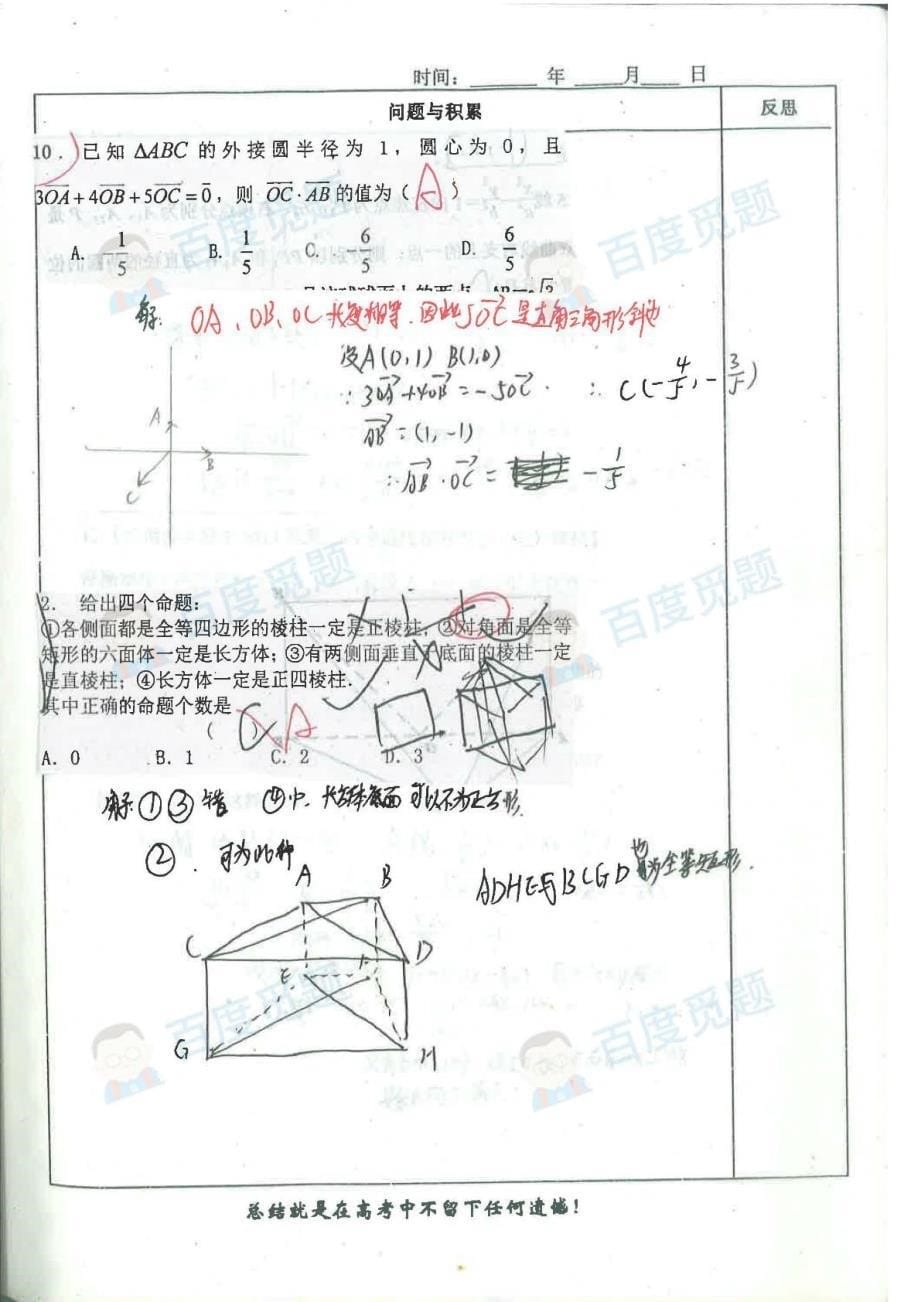 时间:______ 年 _____月____ 日
问题与积累
反思
10．已知 ΔABC 的外接圆半径为 1，圆心为 0，且
3OA+4OB+5OC=0，则 OC·AB的值为（ A ）
A. -1/5 B. 1/5 C. -6/5 D. 6/5
解: OA、OB、OC长度相等.因此5OC是直角三角形斜边
设A(0,1) B(1,0)
∴3OA+4OB=-5OC. ∴ C(-4/5,-3/5)
AB=(1,-1)
∴AB·OC= -1/5
A
B
C
2. 给出四个命题:
①各侧面都是全等四边形的棱柱一定是正棱柱；②对角面是全等
矩形的六面体一定是长方体；③有两侧面垂直于底面的棱柱一定
是直棱柱；④长方体一定是正四棱柱．
其中正确的命题个数是
( C A
A. 0 B. 1 C. 2 D. 3
解:①③错 ④中.长方体底面可以不为正方形.
② .可为此种
ADHE与BCGD也为全等矩形.
A B
C D
E F
G H
百度觅题
百度觅题
百度觅题
百度觅题
百度觅题
百度觅题
总结就是在高考中不留下任何遗憾！